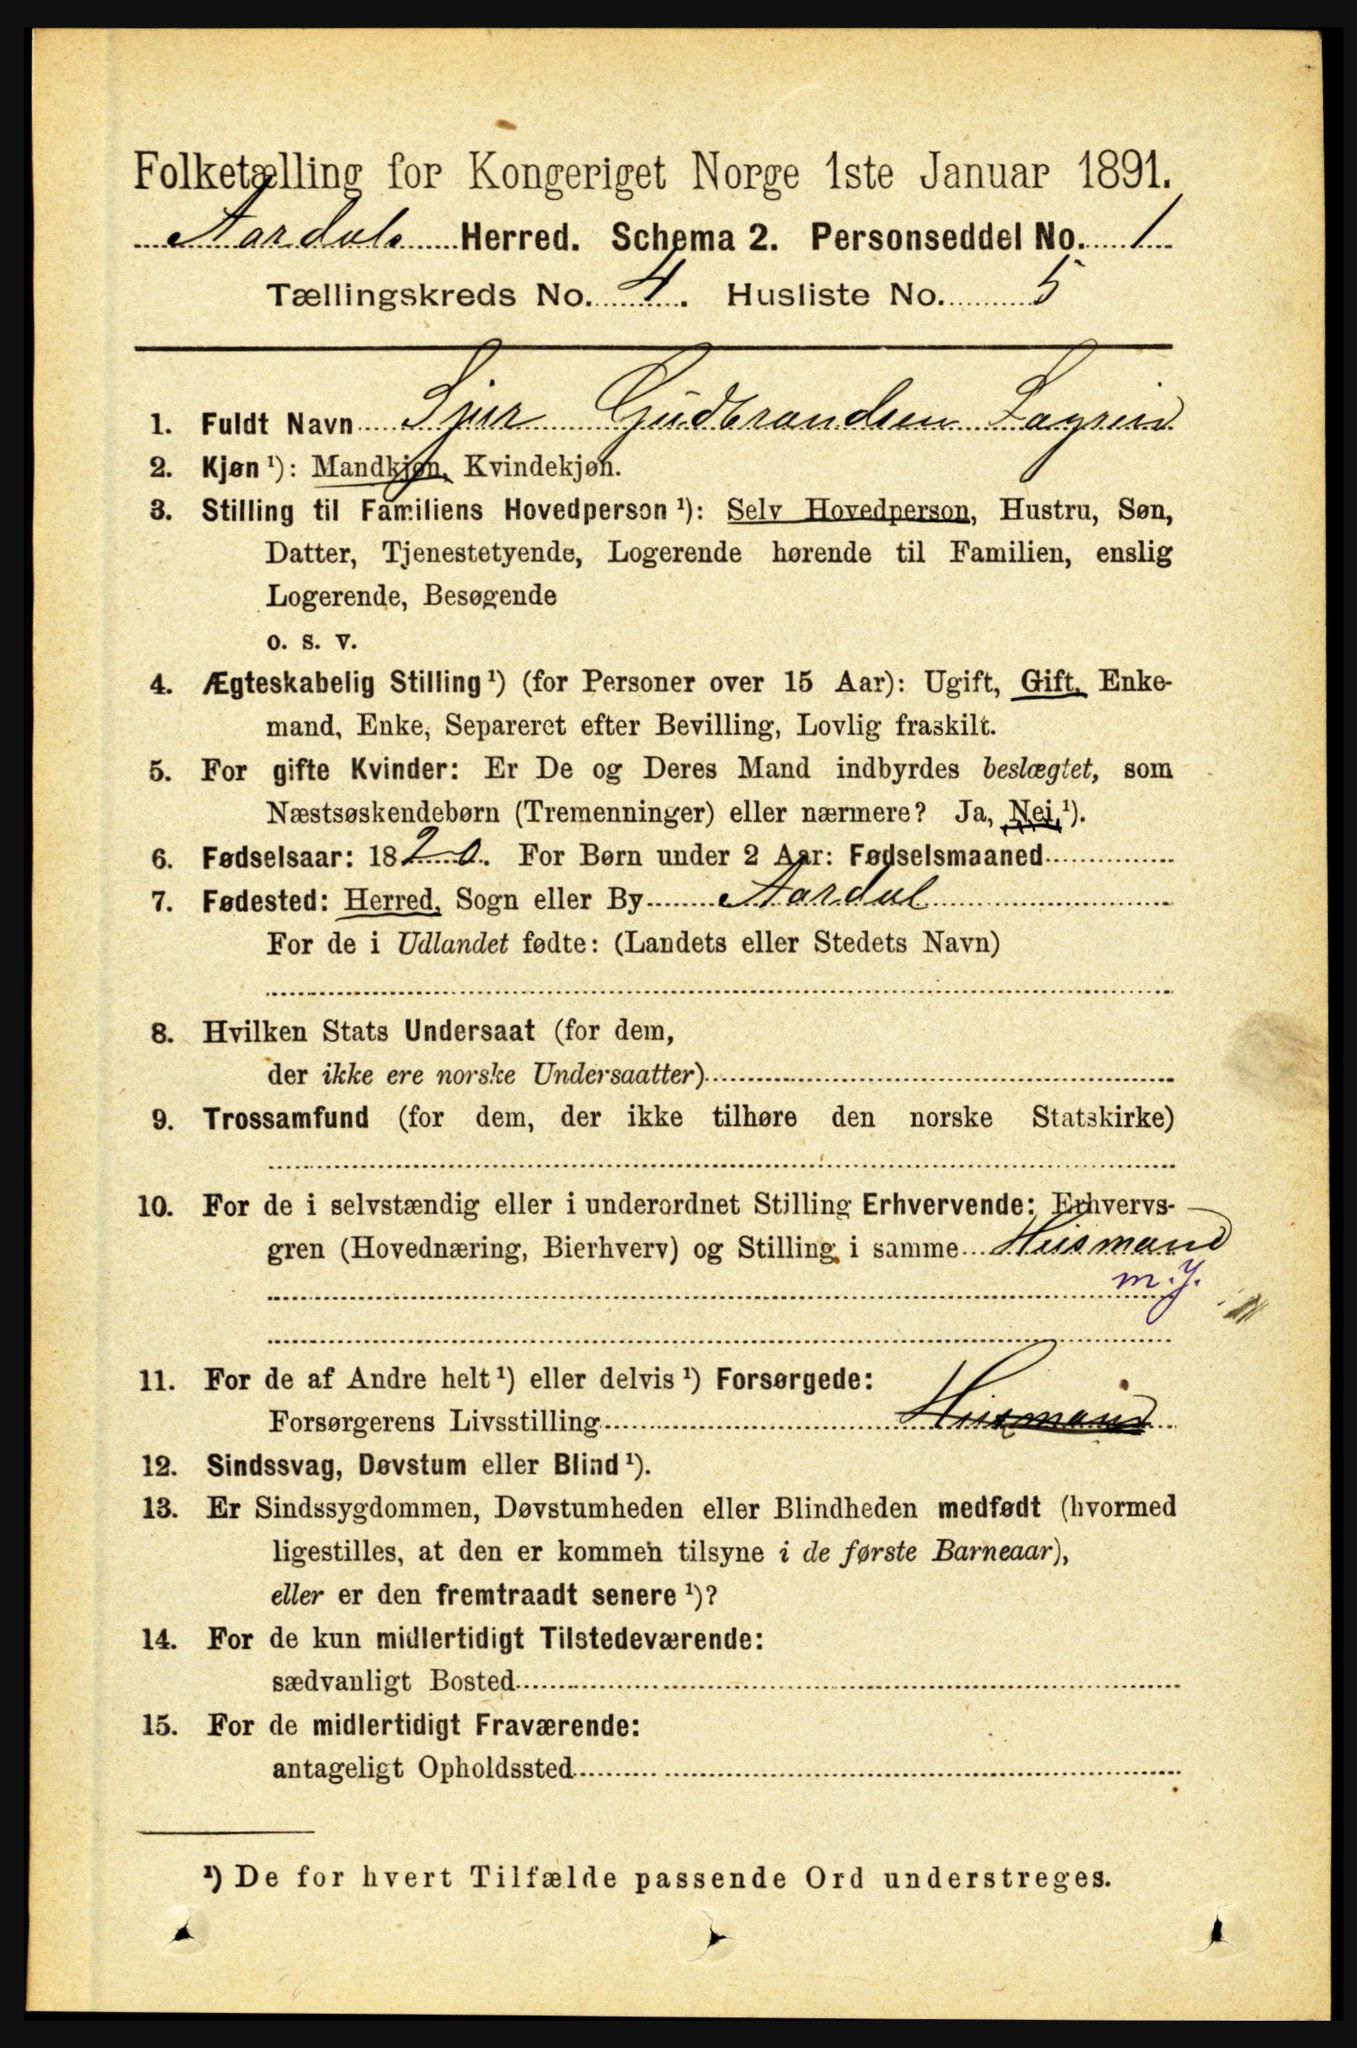 Folketælling for Kongeriget Norge 1ste Januar 1891.
Aardals Herred. Schema 2. Personseddel No. 1
Tællingskreds No. 4. Husliste No. 5
1. Fuldt Navn Sjur Gudbrandsen
2. Kjøn ¹): Mandkjøn, Kvindekjøn.
3. Stilling til Familiens Hovedperson ¹): Selv Hovedperson, Hustru, Søn,
Datter, Tjenestetyende, Logerende hørende til Familien, enslig
Logerende, Besøgende
o. s. v.
4. Ægteskabelig Stilling ¹) (for Personer over 15 Aar): Ugift, Gift, Enke-
mand, Enke, Separeret efter Bevilling, Lovlig fraskilt.
5. For gifte Kvinder: Er De og Deres Mand indbyrdes beslægtet, som
Næstsøskendebørn (Tremenninger) eller nærmere? Ja, Nei, ¹).
6. Fødselsaar: 1820. For Børn under 2 Aar: Fødselsmaaned
7. Fødested: Herred, Sogn eller By Aardal
For de i Udlandet fødte: (Landets eller Stedets Navn)
8. Hvilken Stats Undersaat (for dem,
der ikke ere norske Undersaatter)
9. Trossamfund (for dem, der ikke tilhøre den norske Statskirke)
10. For de i selvstændig eller i underordnet Stilling Erhvervende: Erhvervs-
gren (Hovednæring, Bierhverv) og Stilling i samme Husmand
m. J.
11. For de af Andre helt ¹) eller delvis ¹) Forsørgede:
Forsørgerens Livsstilling Husmand
12. Sindssvag, Døvstum eller Blind ¹).
13. Er Sindssygdommen, Døvstumheden eller Blindheden medfødt (hvormed
ligestilles, at den er kommen tilsyne i de første Barneaar),
eller er den fremtraadt senere ¹)?
14. For de kun midlertidigt Tilstedeværende:
sædvanligt Bosted
15. For de midlertidigt Fraværende:
antageligt Opholdssted
¹) De for hvert Tilfælde passende Ord understreges.